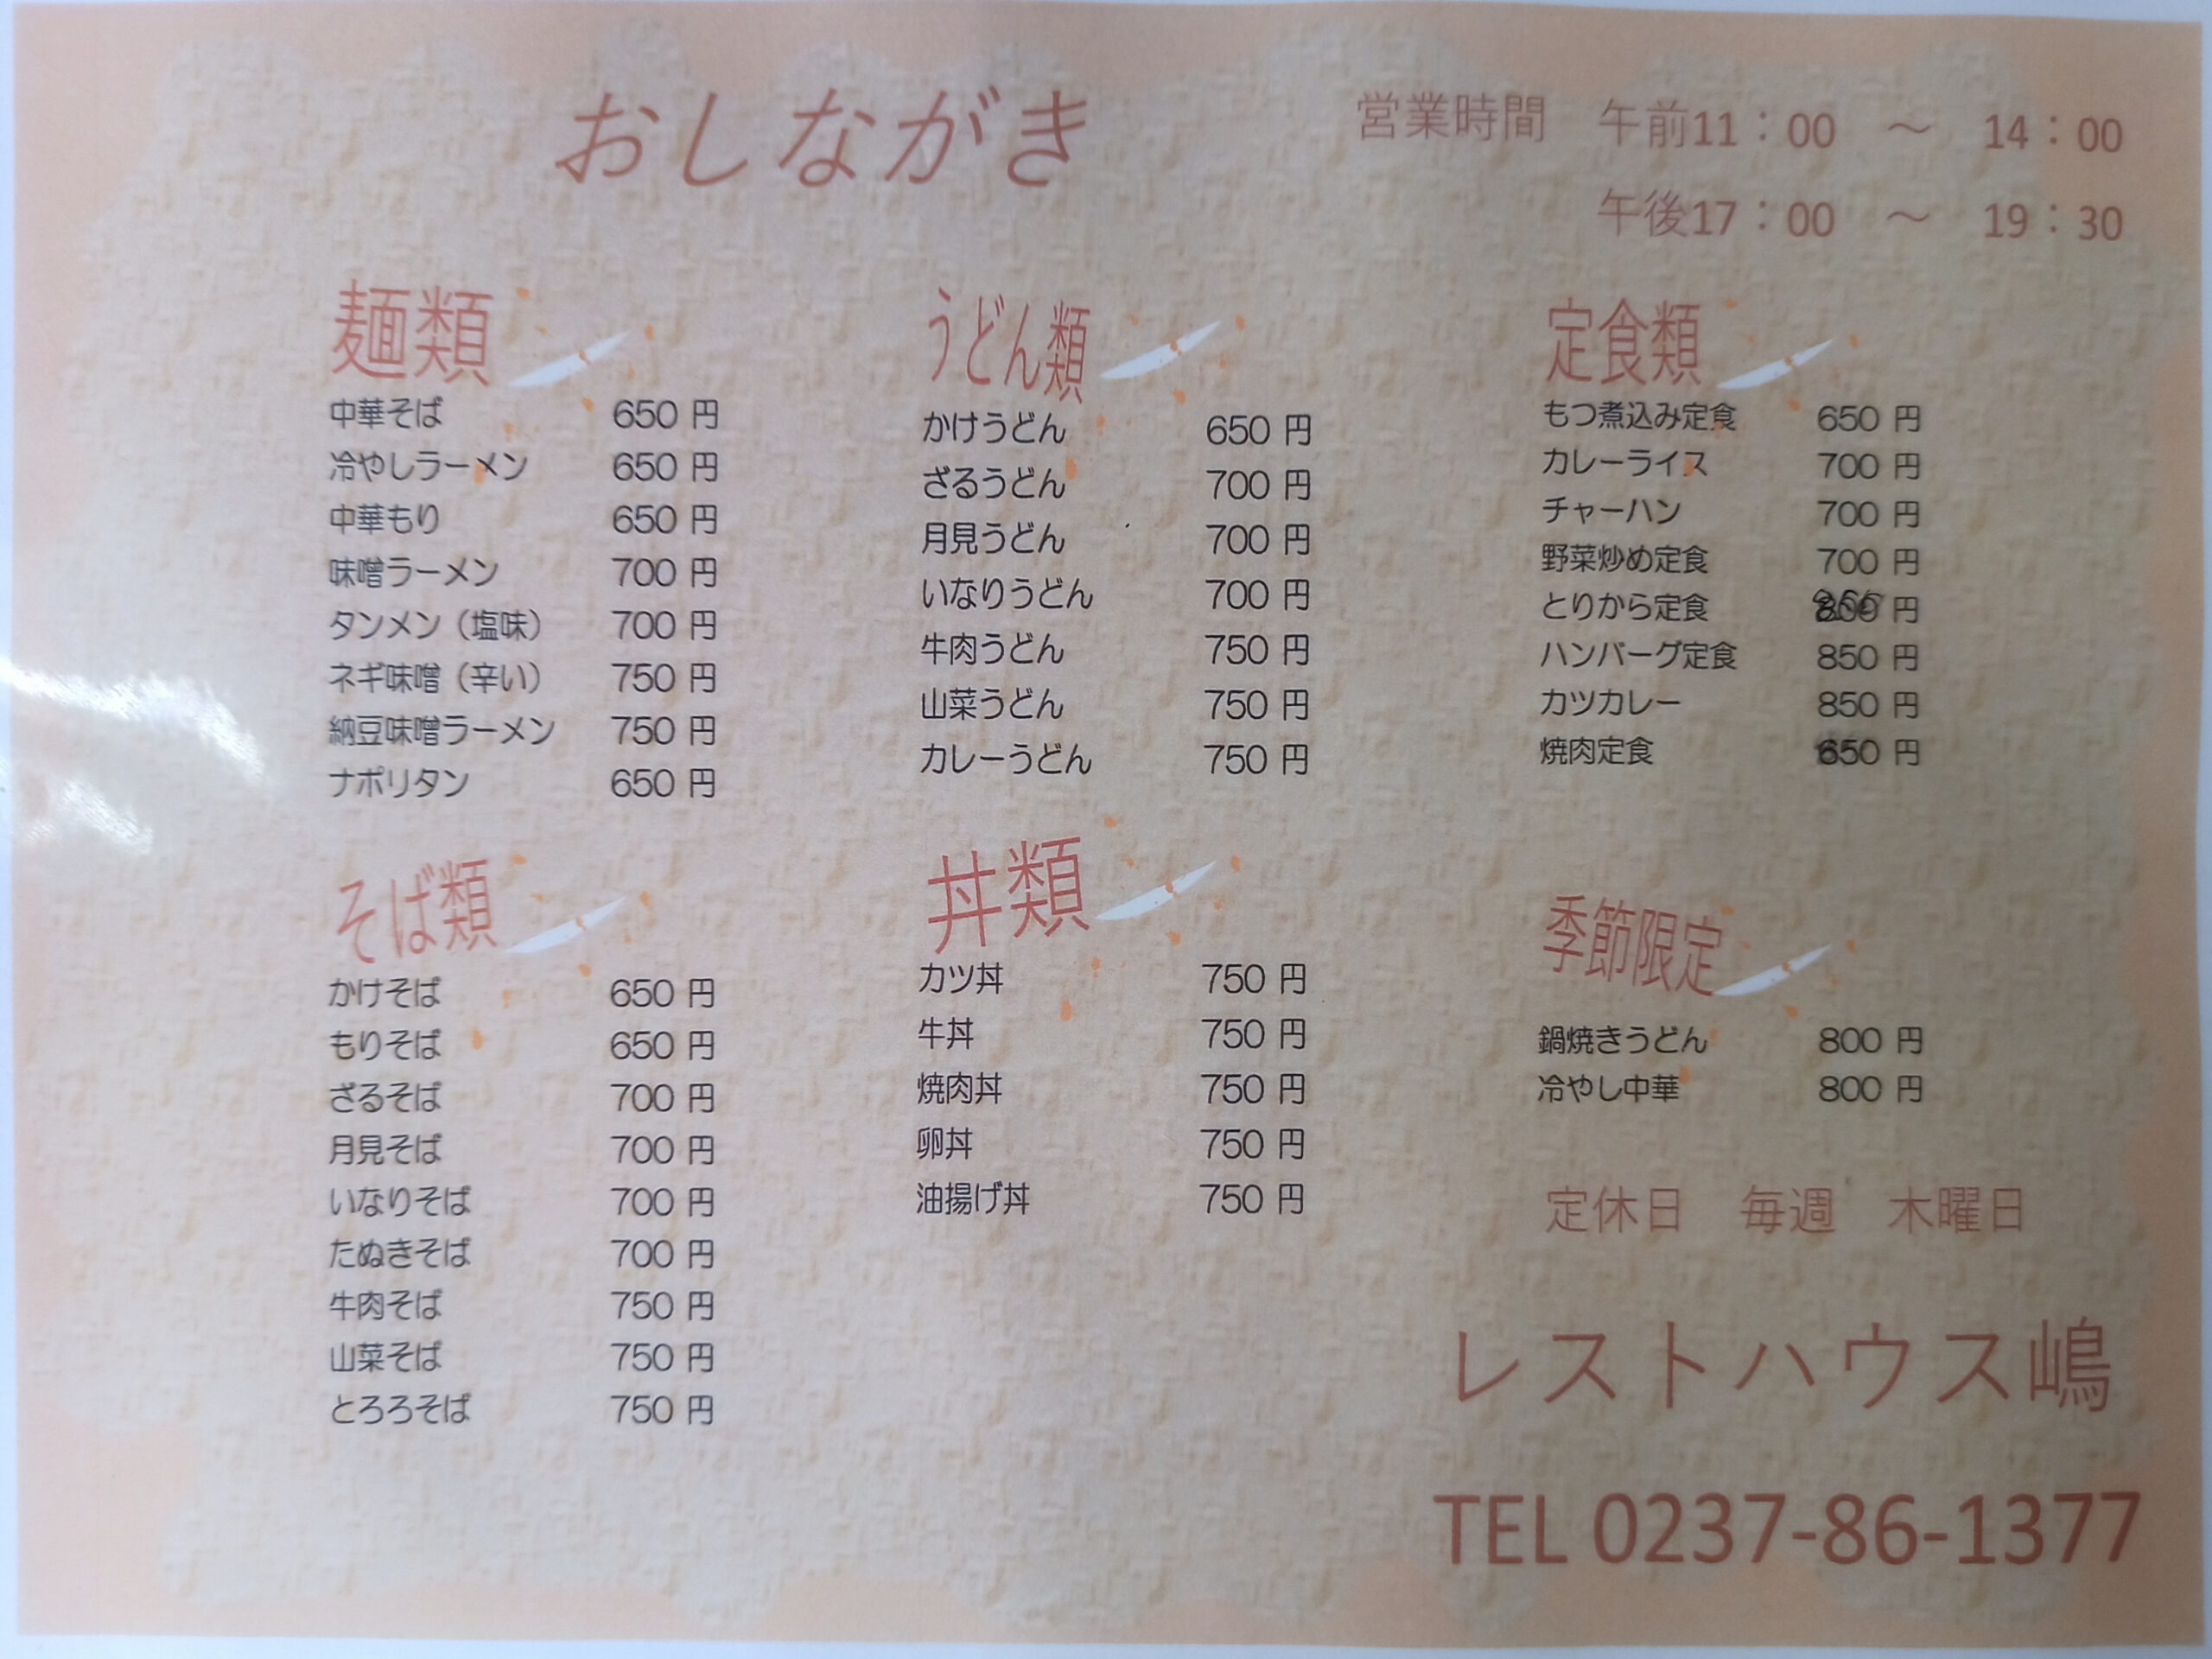 おしながき
営業時間 午前11：00 ～ 14：00
午後17：00 ～ 19：30
麺類
中華そば 650 円
冷やしラーメン 650 円
中華もり 650 円
味噌ラーメン 700 円
タンメン（塩味） 700 円
ネギ味噌（辛い） 750 円
納豆味噌ラーメン 750 円
ナポリタン 650 円
そば類
かけそば 650 円
もりそば 650 円
ざるそば 700 円
月見そば 700 円
いなりそば 700 円
たぬきそば 700 円
牛肉そば 750 円
山菜そば 750 円
とろろそば 750 円
うどん類
かけうどん 650 円
ざるうどん 700 円
月見うどん 700 円
いなりうどん 700 円
牛肉うどん 750 円
山菜うどん 750 円
カレーうどん 750 円
丼類
カツ丼 750 円
牛丼 750 円
焼肉丼 750 円
卵丼 750 円
油揚げ丼 750 円
定食類
もつ煮込み定食 650 円
カレーライス 700 円
チャーハン 700 円
野菜炒め定食 700 円
とりから定食 円
ハンバーグ定食 850 円
カツカレー 850 円
焼肉定食 円
季節限定
鍋焼きうどん 800 円
冷やし中華 800 円
定休日 毎週 木曜日
レストハウス嶋
TEL 0237-86-1377